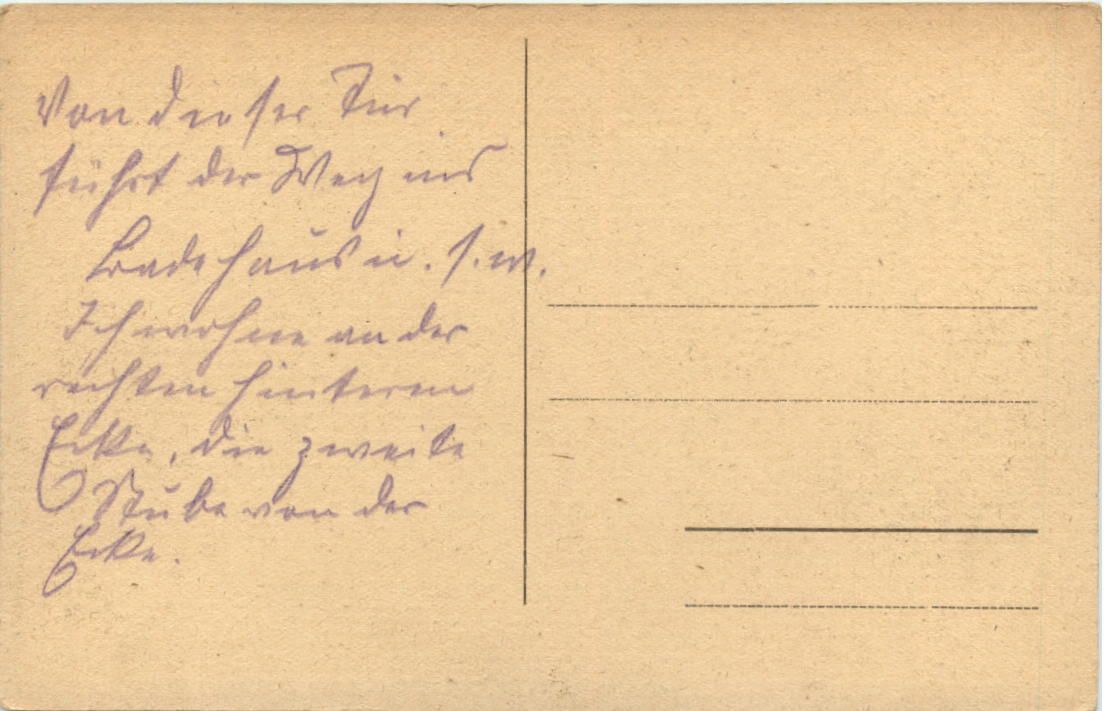 Von dieser Tür
führt der Weg ins
Badehaus u. s. w.
Ich wohne an der
rechten hinteren
Ecke, die zweite
Stube von der
Ecke.